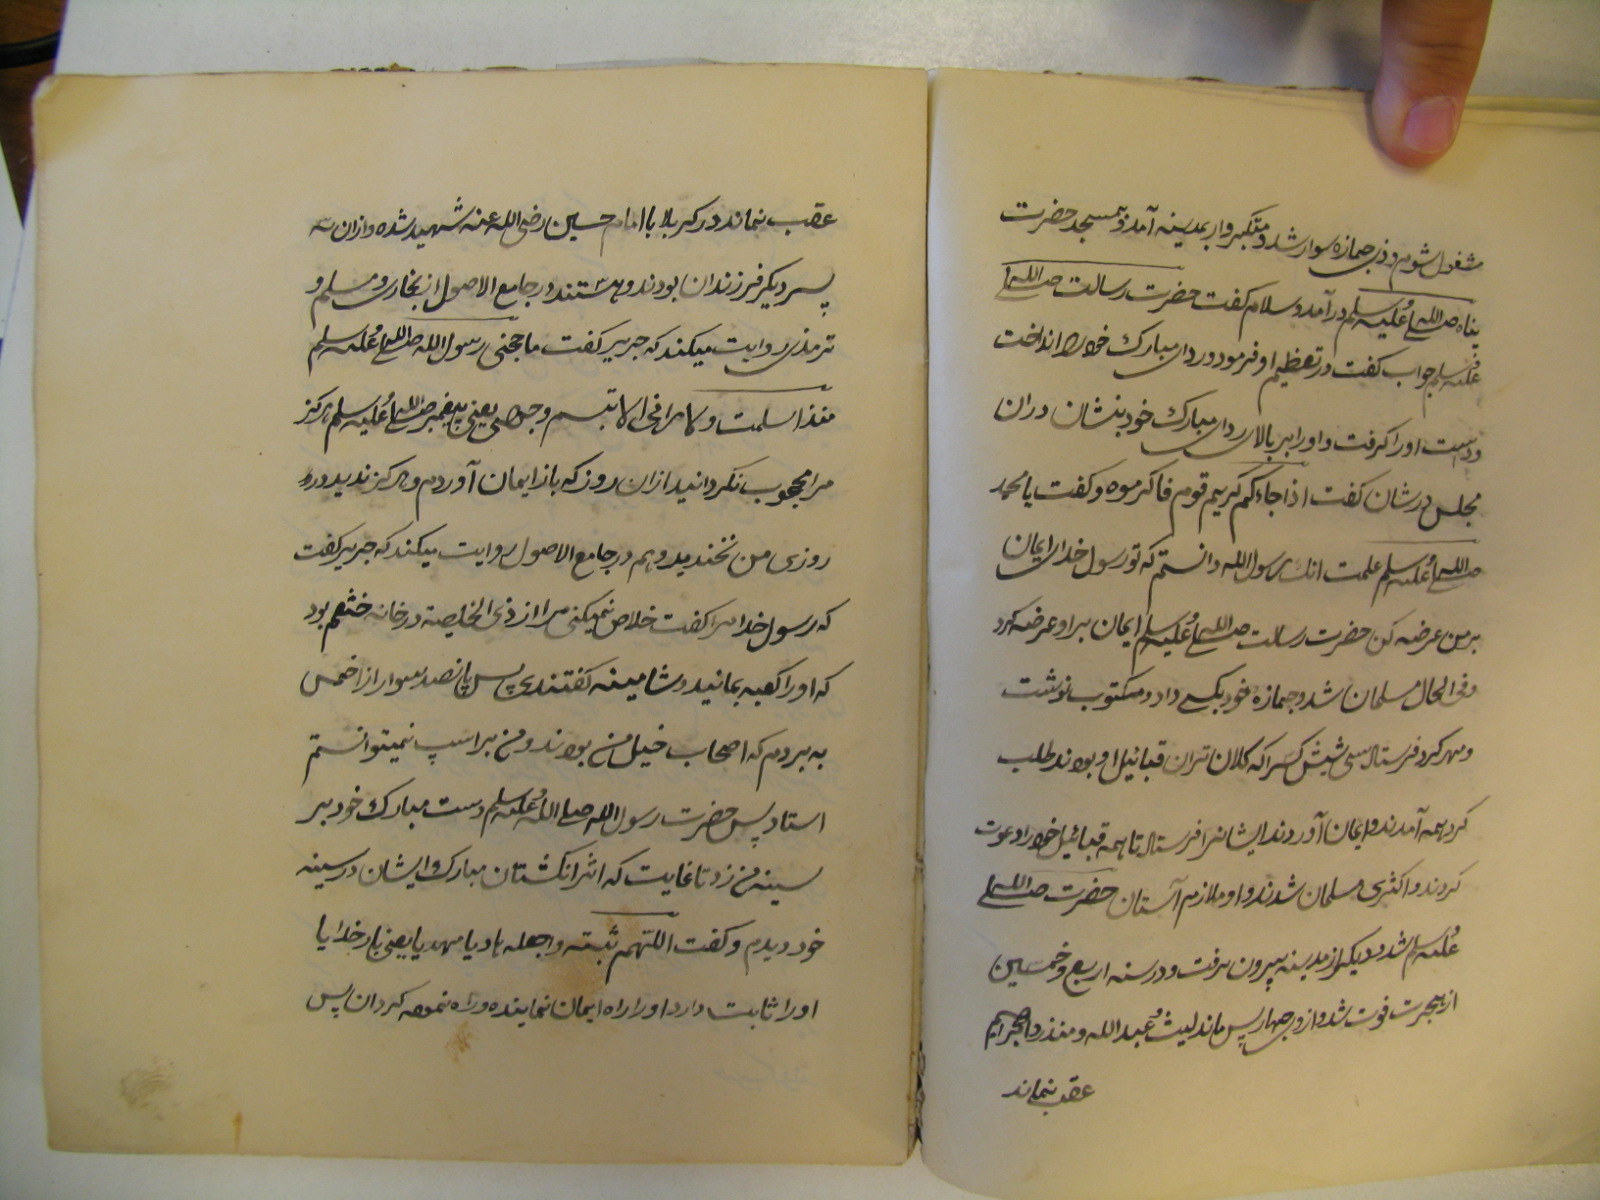 مشغول شوم و ذی جمازه سوار شد و متکبروار بمدینه آمد و بمسجد حضرت
پناه صلی الله علیه وسلم درآمد و سلام گفت حضرت رسالت صلی الله
علیه وسلم جواب گفت و در تعظیم او فرمود و ردای مبارک خود را انداخت
و دست او را گرفت و او را بر بالای ردای مبارک خود بنشان دران
مجلس در شان گفت اذا جاءکم کریم قوم فاکرموه و گفت یا محمد
صلی الله علیه وسلم علمت انک رسول الله دانستم که تو رسول خدای ایمان
بر من عرضه کن حضرت رسالت صلی الله علیه وسلم ایمان بر او عرضه کرد
و فی الحال مسلمان شد و جمازه خود بکسی داد و مکتوب نوشت
و مهر کرد فرستاد سی شیش کس را که کلان تران قبائیل او بودند طلب
کرد همه آمدند و ایمان آوردند ایشانرا فرستاد تا همه قبائیل خود را دعوت
کردند و اکثری مسلمان شدند و او ملازم آستان حضرت صلی الله
علیه وسلم شد و دیگر از مدینه بیرون نرفت و در سنه اربع و خمسین
از هجرت فوت شد و از وی چهار پس ماند لیث و عبدالله و منذر و ابراهیم
عقب نماند
عقب نماند در کربلا با امام حسین رضی الله عنه شهید شده و ازان سه
پسر دیگر فرزندان بودند و هستند در جامع الاصول از بخاری و مسلم و
ترمذی روایت میکند که جریر گفت ما حجنی رسول الله صلی الله علیه وسلم
منذ اسلمت و لا مرانی الا تبسم وجهی یعنی پیغمبر صلی الله علیه وسلم هرگز
مرا محجوب نگردانید ازان روز که باز ایمان آوردم و هرگز ندید در
روزی من نخندید و هم در جامع الاصول روایت میکند که جریر گفت
که رسول خدا مرا گفت خلاص نمیکنی مرا از ذی الخلیصة در خانه خثعم بود
که او را کعبه یمانیه و شامینه گفتندی پس پانصد سوار از احمس
به بردم که اصحاب خیل من بودند و من بر اسپ نمیتوانستم
استاد پس حضرت رسول الله صلی الله علیه وسلم دست مبارک خود بر
سینه من زد تا غایت که اثر انگشتان مبارک ایشان در سینه
خود دیدم و گفت اللهم ثبته واجعله هادیا مهدیا یعنی بار خدایا
او را ثابت دار و او را راه ایمان نماینده و راه نموده گردان پس